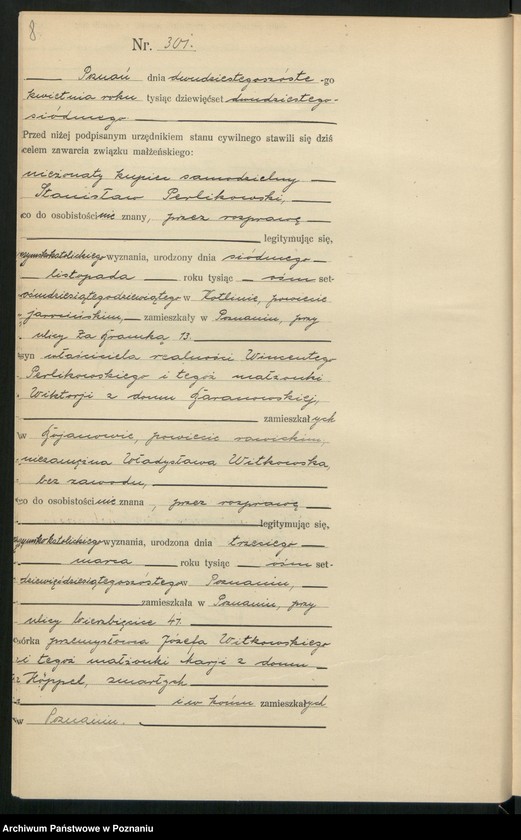 8.
Nr. 301.
Poznań dnia dwudziestegoszóste -go
kwietnia roku tysiąc dziewięćset dwudziestego-
siódmego
Przed niżej podpisanym urzędnikiem stanu cywilnego stawili się dziś
celem zawarcia związku małżeńskiego:
nieżonaty kupiec samodzielny
Stanisław Perlikowski,
co do osobistości nie znany, przez rozprawę
legitymując się,
rzymskokatolickiego wyznania, urodzony dnia siódmego
listopada roku tysiąc ośm set-
ośmdziesiątegodziewiątego w Kotlinie, powiecie
Jarocińskim, zamieszkały w Poznaniu, przy
ulicy Za Bramką 13.
syn właściciela realności Wincentego
Perlikowskiego i tegoż małżonki
Wiktorji z domu
zamieszkałych
w Gojanowie, powiecie rawickim,
niezamężna Władysława Witkowska,
bez zawodu,
co do osobistości nie znana, przez rozprawę
legitymując się,
rzymskokatolickiego wyznania, urodzona dnia trzeciego
marca roku tysiąc ośm set-
dziewięćdziesiątegoszóstego w Poznaniu,
zamieszkała w Poznaniu, przy
ulicy Wierzbięcice 41.
córka przemysłowca Józefa Witkowskiego
i tegoż małżonki Marji z domu
Köppel, zmarłych
i w końcu zamieszkałych
w Poznaniu.
Archiwum Państwowe w Poznaniu